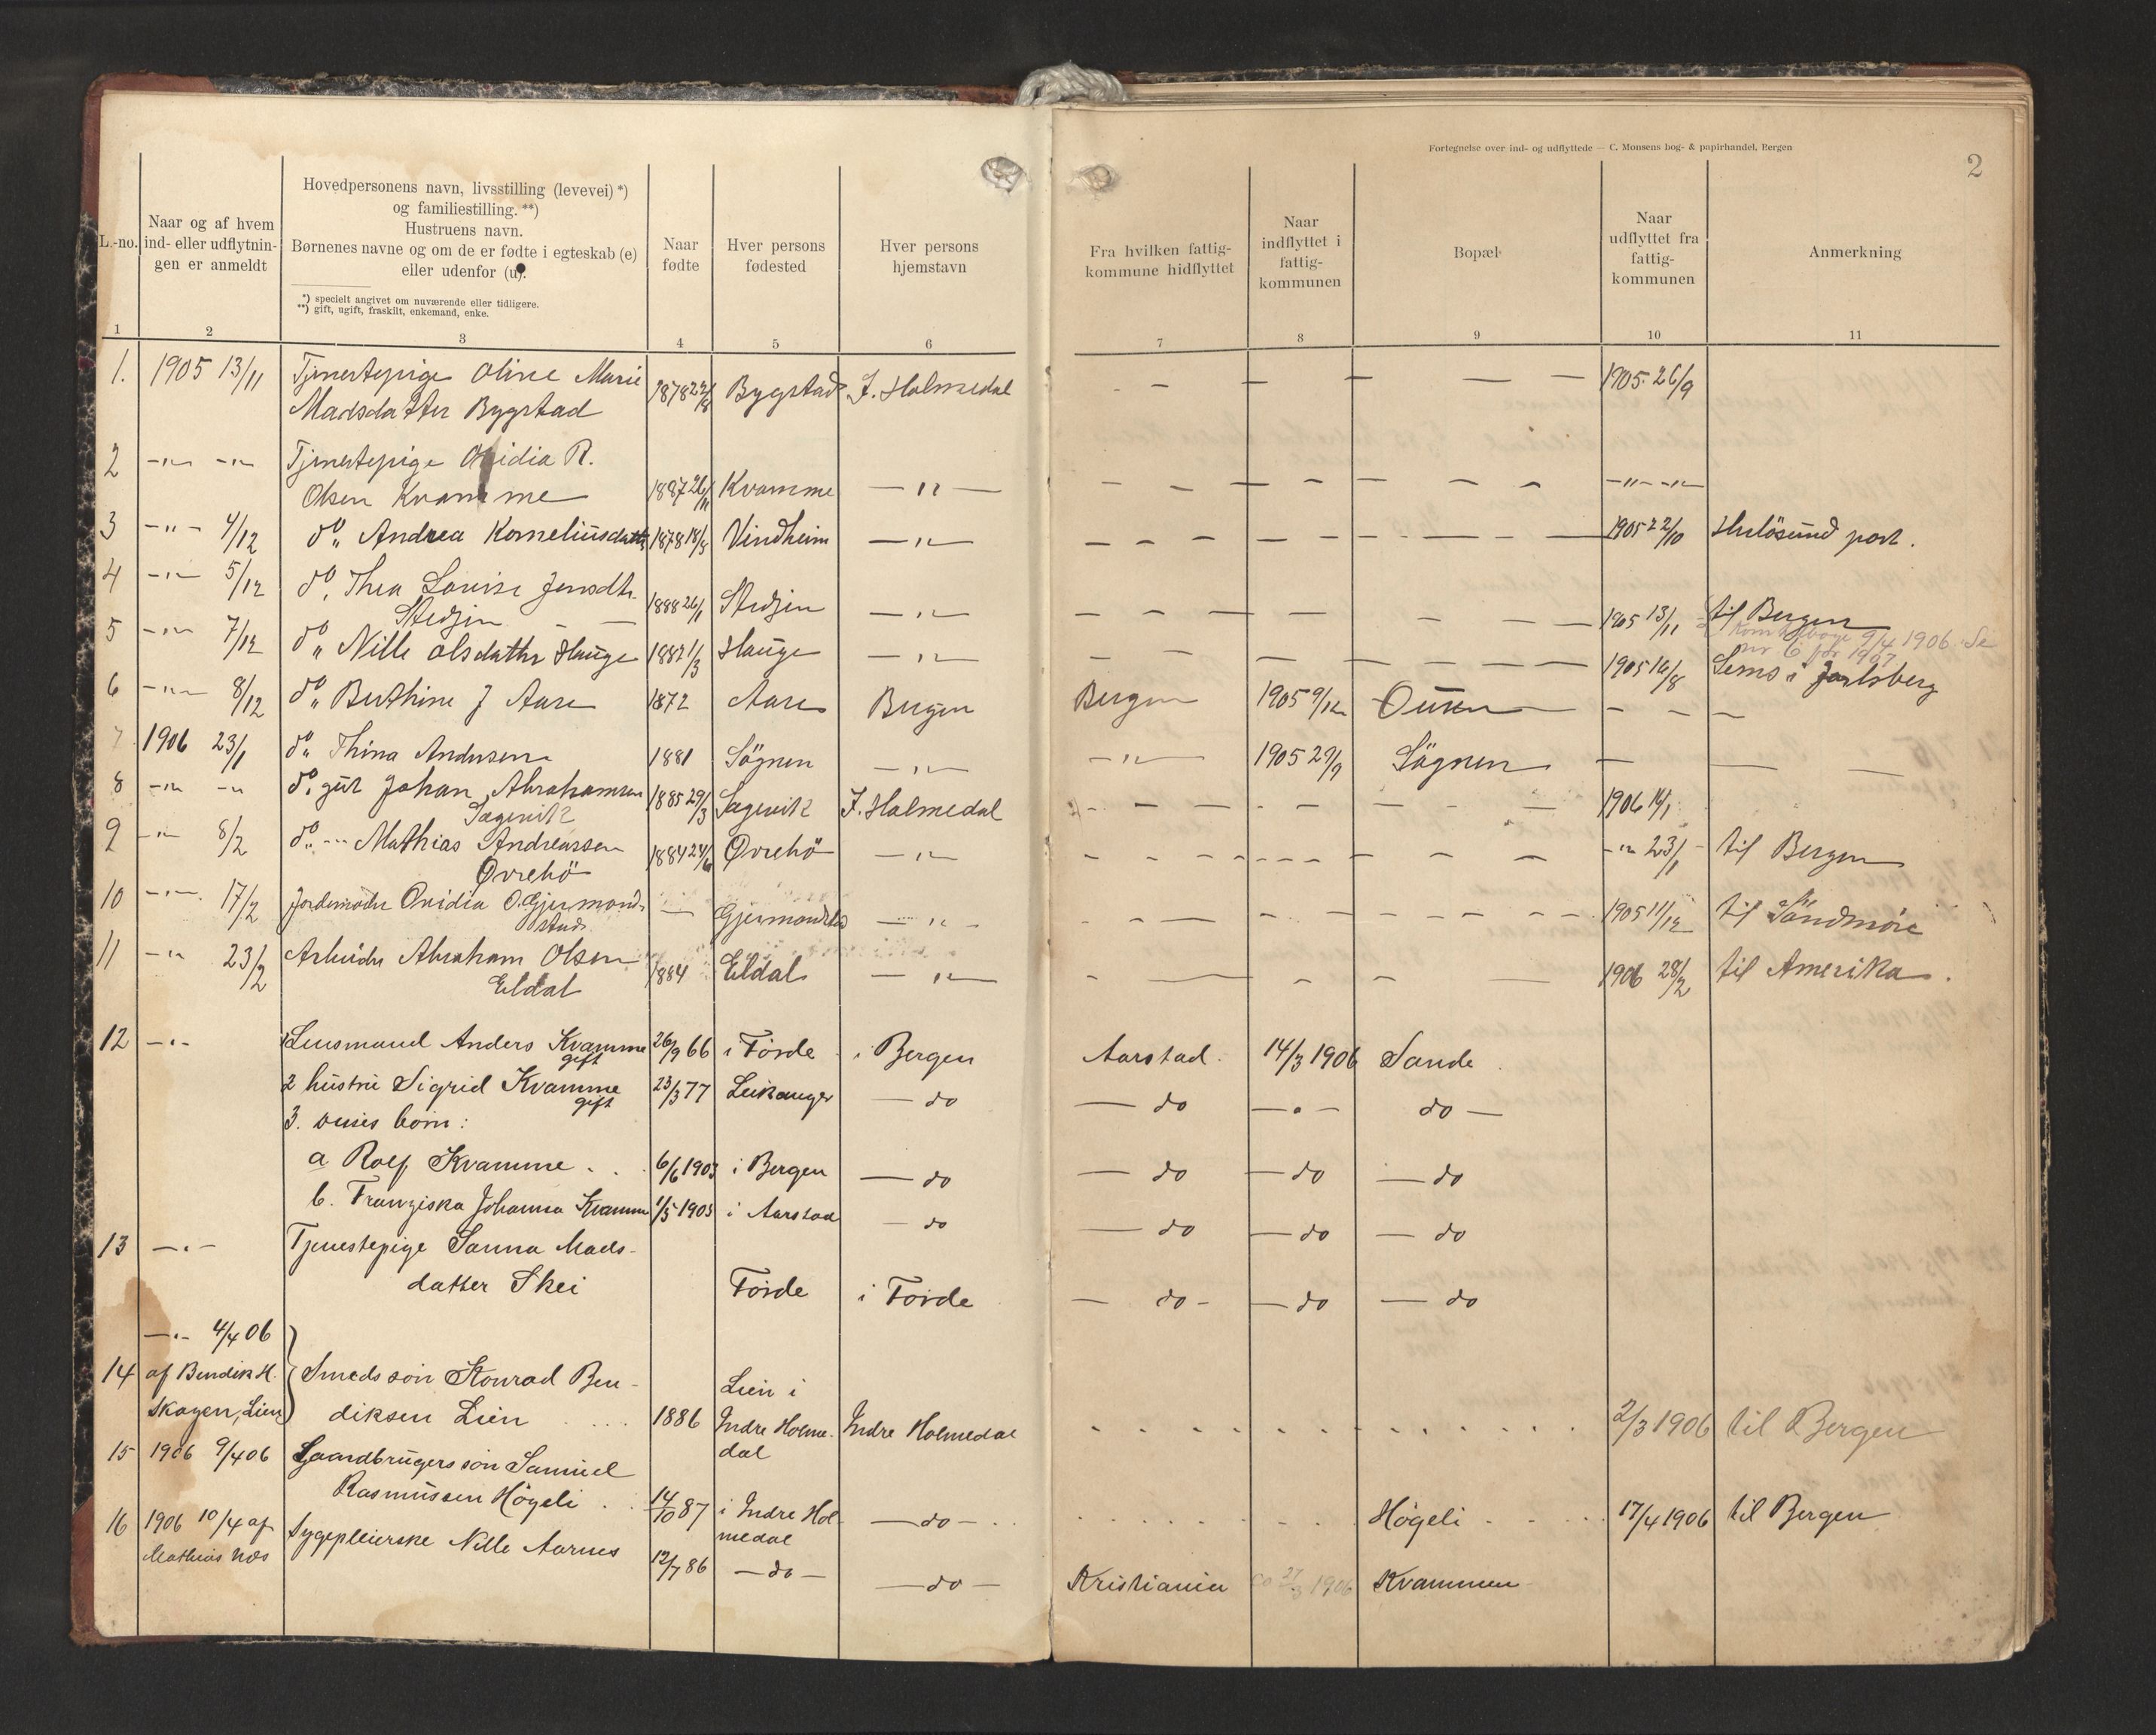 Fortegnelse over ind- og udflyttede — C. Monsens bog- & papirhandel, Bergen
2
L.-no.
Naar og af hvem
ind- eller udflytnin-
gen er anmeldt
Hovedpersonens navn, livsstilling (levevei) *)
og familiestilling. **)
Hustruens navn.
Børnenes navne og om de er fødte i egteskab (e)
eller udenfor (u).
*) specielt angivet om nuværende eller tidligere.
**) gift, ugift, fraskilt, enkemand, enke.
Naar
fødte
Hver persons
fødested
Hver persons
hjemstavn
Fra hvilken fattig-
kommune hidflyttet
Naar
indflyttet i
fattig-
kommunen
Bopæl
Naar
udflyttet fra
fattig-
kommunen
Anmerkning
1 2 3 4 5 6 7 8 9 10 11
1. 1905 13/11 Tjenestepige Oline Marie 1878 22/8 Bygstad I. Holmedal — — — — — 1905 26/9
Madsdatter Bygstad
2 —"— —"— Tjenestepige Ovidia R.
Olsen Kvamme 1887 Kvamme —"— — — — — — —"— —"—
3 —"— 4/12 do Andrea Korneliusdatter 1878 18/3 Vindheim —"— — — — — — 1905 22/10 post.
4 —"— 5/12 do Thea Lovise Jensdtr.
Stedjen 1888 26/1 Stedjen —"— — — — — — 1905 13/11 til Bergen
9/4 1906. Se
nr 6 for 1907
5 —"— 7/12 do Nille Olsdatter Hauge 1882 1/3 Hauge —"— — — — — — 1905 16/8 Sems i Jarlsberg
6 —"— 8/12 do Berthine J Aare 1872 Aare Bergen Bergen 1905 9/12 Ousen — — —
7 1906 23/1 do Thina Andersen 1881 Sögnen —"— —"— 1905 29/9 Sögnen — — —
8 —"— —"— do gut Johan Abrahamsen 1885 29/3 Sagevik I. Holmedal — — — — — 1906 14/1
Sagevik
9 —"— 8/2 do —"— Mathias Andreassen 1884 24/6 Øvrehö —"— — — — — — —"— 23/1 til Bergen
Øvrehö
10 —"— 17/2 Jordemoder Ovidia O. Gjermond- — Gjermondstad —"— — — — — — 1905 11/12 til Söndmöre
stad
11 —"— 23/2 Arbeider Abraham Olsen 1884 Eldal —"— — — — — 1906 28/2 til Amerika.
Eldal
12 —"— 1 Lensmand Anders Kvamme 26/9 66 i Förde i Bergen Aarstad. 14/3 1906 Sande
gift
2 hustru Sigrid Kvamme 23/3 77 Leikanger — do — do —"— do —
gift
3. deres börn:
a Rolf Kvamme . . 6/6 1903 i Bergen — do — do — do — do
b. Franziska Johanna Kvamme 1/5 1905 i Aarstad — do — do — do — do
13 —"— Tjenestepige Sanna Mads-
datter Skei Förde i Förde — do — — do — do
—"— 4/4 06
14 af Bendik H. Smedssön Konrad Ben- Lien i
Skagen, Lien diksen Lien . . . . 1886 Indre Holme- Indre Holmedal . . . . . 2/3 1906 til Bergen
dal
15 1906 9/4 06 Gaardbrugerssön Samuel
Rasmussen Högeli . . 14/10 87 i Indre Hol- — do — . . . . . . Högeli . . . 17/4 1906 til Bergen
medal
16 1906 10/4 af Sygepleierske Nille Aarnes
Mathias Næs 12/7 86 — do — — do — Kristiania 27/3 1906 Kvammen